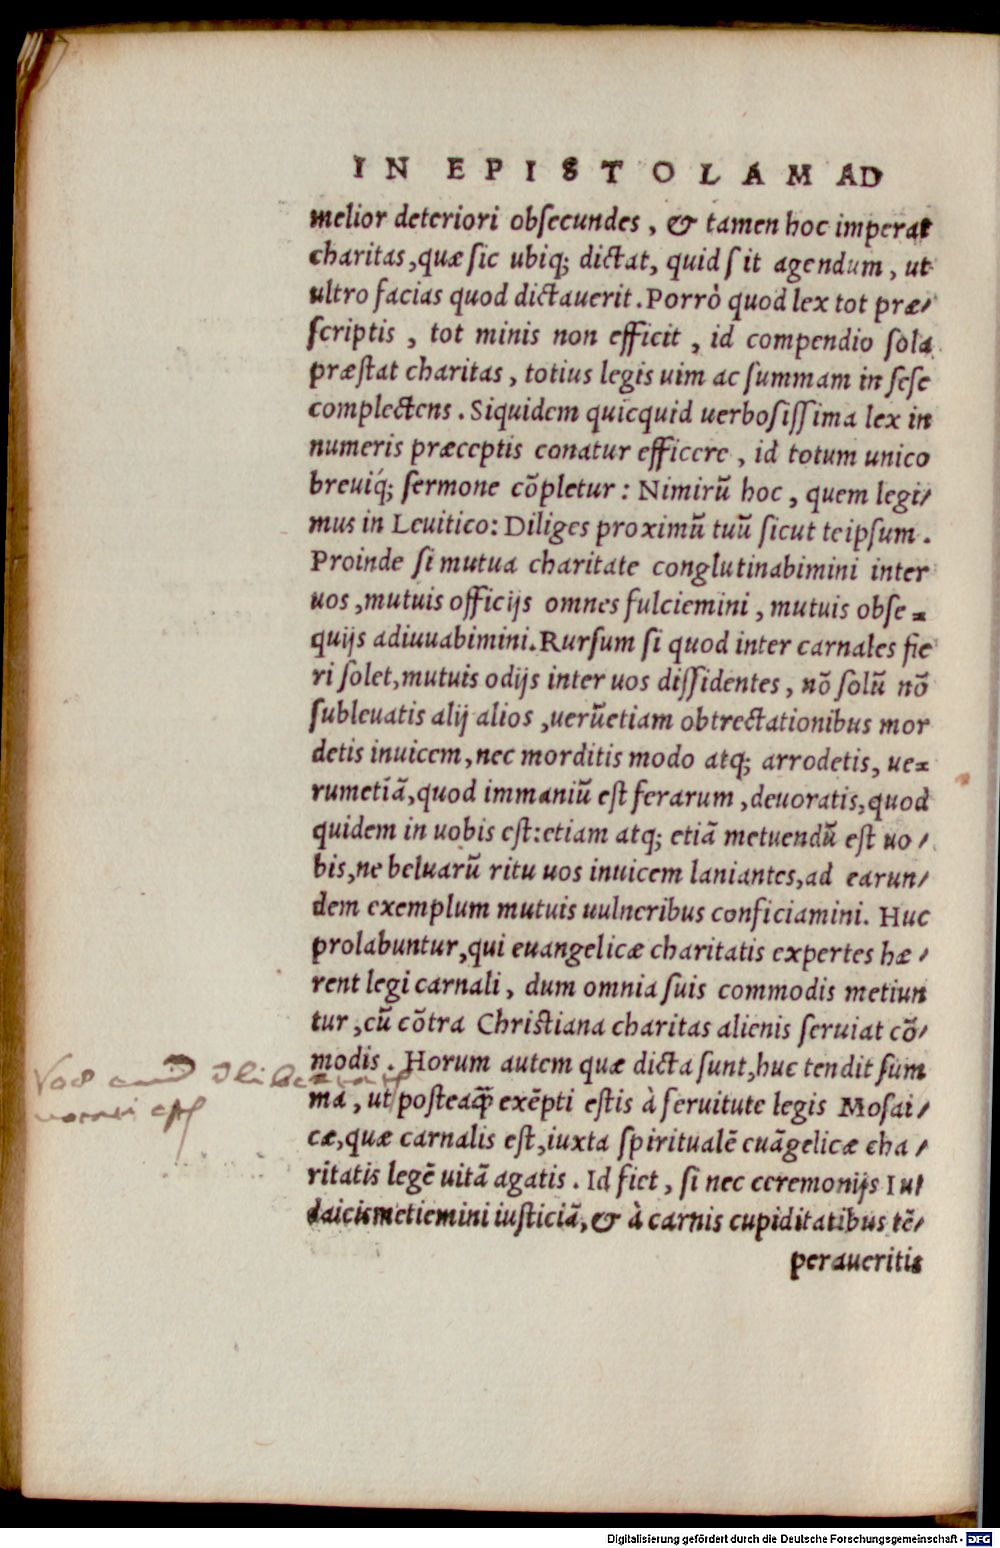 IN EPISTOLAM AD
melior deteriori obſecundes, & tamen hoc imperat
charitas, quæ ſic ubiq; dictat, quid ſit agendum, ut
ultro facias quod dictauerit. Porrò quod lex tot præ/
ſcriptis, tot minis non efficit, id compendio ſola
præſtat charitas, totius legis uim ac ſummam in ſeſe
complectens. Siquidem quicquid uerboſiſſima lex in
numeris præceptis conatur efficere, id totum unico
breuiq́; ſermone cõpletur: Nimirũ hoc, quem legi/
mus in Leuitico: Diliges proximũ tuũ ſicut teipſum.
Proinde ſi mutua charitate conglutinabimini inter
uos, mutuis officijs omnes fulciemini, mutuis obſe⸗
quijs adiuuabimini. Rurſum ſi quod inter carnales fie
ri ſolet, mutuis odijs inter uos diſſidentes, nõ ſolũ nõ
ſubleuatis alij alios, uerũetiam obtrectationibus mor
detis inuicem, nec morditis modo atq; arrodetis, ue⸗
rumetiã, quod immaniũ eſt ferarum, deuoratis, quod
quidem in uobis eſt: etiam atq; etiã metuendũ eſt uo/
bis, ne beluarũ ritu uos inuicem laniantes, ad earun/
dem exemplum mutuis uulneribus conficiamini. Huc
prolabuntur, qui euangelicæ charitatis expertes hæ/
rent legi carnali, dum omnia ſuis commodis metiun
tur, cũ cõtra Chriſtiana charitas alienis ſeruiat cõ/
modis. Horum autem quæ dicta ſunt, huc tendit ſum
ma, ut poſteaq̃ exẽpti eſtis à ſeruitute legis Moſai/
cæ, quæ carnalis eſt, iuxta ſpiritualẽ euãgelicæ cha/
ritatis legẽ uitã agatis. Id fiet, ſi nec ceremonijs Iu/
daicis metiemini iuſticiã, & à carnis cupiditatibus tẽ/
peraueritis
Digitalisierung gefördert durch die Deutsche Forschungsgemeinschaft - DFG